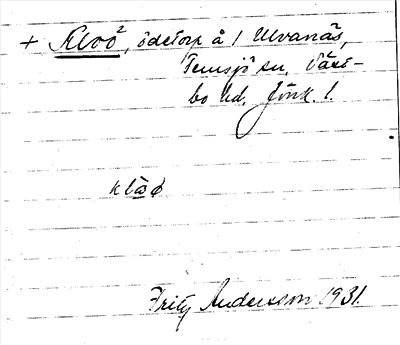 + Kloo², ödetorp å 1 Ulvanäs,
Femsjö sn, Väst-
bo hd, Jönk. l.
Fritz Andersson 1931.